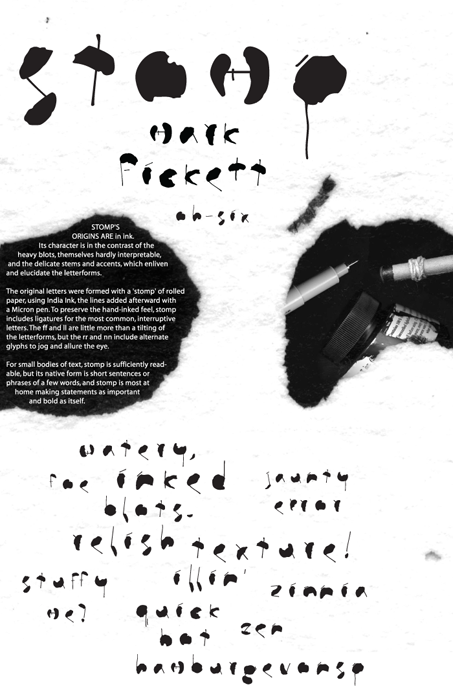 stomp
Mark
Pickett
oh-six
STOMP'S
ORIGINS ARE in ink.
Its character is in the contrast of the
heavy blots, themselves hardly interpretable,
and the delicate stems and accents, which enliven
and elucidate the letterforms.
The original letters were formed with a 'stomp' of rolled
paper, using India Ink, the lines added afterward with
a Micron pen. To preserve the hand-inked feel, stomp
includes ligatures for the most common, interruptive
letters. The ff and ll are little more than a tilting of
the letterforms, but the rr and nn include alternate
glyphs to jog and allure the eye.
For small bodies of text, stomp is sufficiently read-
able, but its native form is short sentences or
phrases of a few words, and stomp is most at
home making statements as important
and bold as itself.
watery,
foe inked
blots.
jaunty
error
relish texture!
stuffy
me?
illin'
zinnia
quick
bat
zen
hamburgevonsp